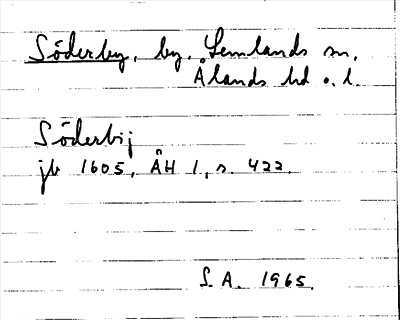 Söderby, by, Lemlands sn,
Ålands hd o. l.
Söderbij
jb 1605, ÅH 1, s. 422.
S. A. 1965.